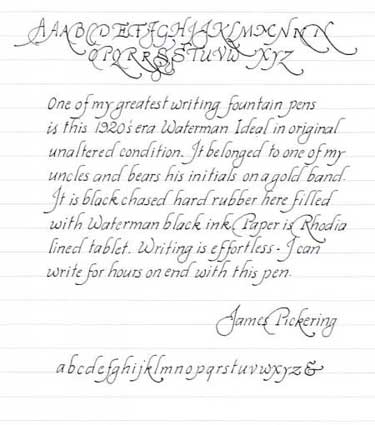 AAABCDEFJGHIJAKLMXNNN
OPQRRSSSTUVW XYZ
One of my greatest writing fountain pens
is this 1920's era Waterman Ideal in original
unaltered condition. It belonged to one of my
uncles and bears his initials on a gold band.
It is black chased hard rubber here filled
with Waterman black ink. Paper is Rhodia
lined tablet. Writing is effortless - I can
write for hours on end with this pen.
James Pickering
abcdefghijklmnopqrstuvwxyz&